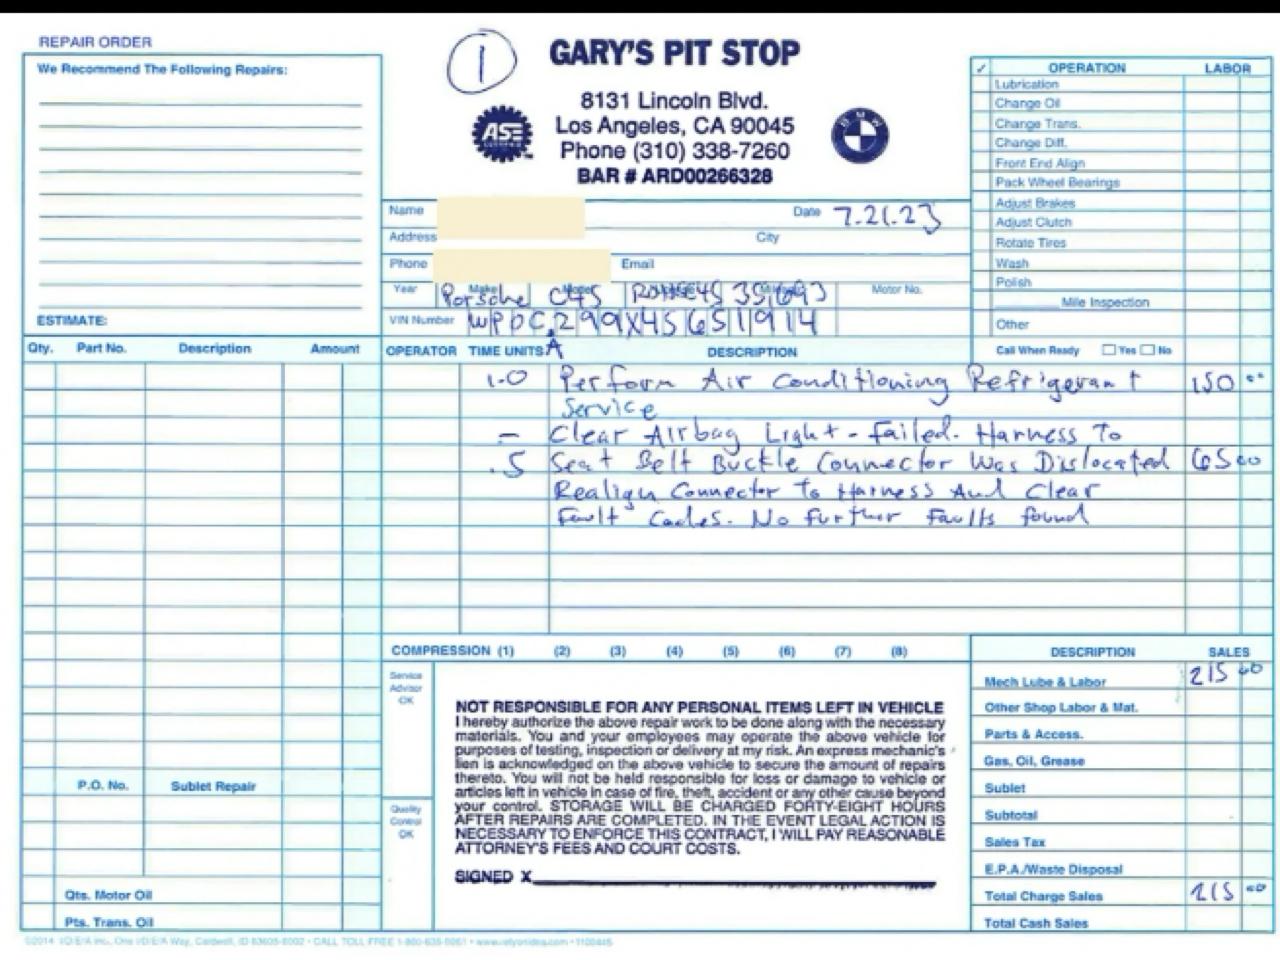 REPAIR ORDER
We Recommend The Following Repairs:
ESTIMATE:
1
GARY'S PIT STOP
8131 Lincoln Blvd.
Los Angeles, CA 90045
Phone (310) 338-7260
BAR # ARD00266328
ASE
BMW
Name
Date 7.21.23
Address
City
Phone
Email
Year Make Model Mileage Motor No.
Porsche C4S
VIN Number
✓ OPERATION LABOR
Lubrication
Change Oil
Change Trans.
Change Diff.
Front End Align
Pack Wheel Bearings
Adjust Brakes
Adjust Clutch
Rotate Tires
Wash
Polish
Mile Inspection
Other
Call When Ready Yes No
Qty. Part No. Description Amount
OPERATOR TIME UNITS A DESCRIPTION
1.0 Perform Air Conditioning Refrigerant 150 00
Service
– Clear Airbag Light - Failed. Harness To
.5 Seat Belt Buckle Connector Was Dislocated 65 00
Realign Connector To Harness And Clear
Fault Codes. No further Faults found
P.O. No. Sublet Repair
Qts. Motor Oil
Pts. Trans. Oil
COMPRESSION (1) (2) (3) (4) (5) (6) (7) (8)
Service
Advisor
OK
Quality
Control
OK
NOT RESPONSIBLE FOR ANY PERSONAL ITEMS LEFT IN VEHICLE
I hereby authorize the above repair work to be done along with the necessary
materials. You and your employees may operate the above vehicle for
purposes of testing, inspection or delivery at my risk. An express mechanic's
lien is acknowledged on the above vehicle to secure the amount of repairs
thereto. You will not be held responsible for loss or damage to vehicle or
articles left in vehicle in case of fire, theft, accident or any other cause beyond
your control. STORAGE WILL BE CHARGED FORTY-EIGHT HOURS
AFTER REPAIRS ARE COMPLETED. IN THE EVENT LEGAL ACTION IS
NECESSARY TO ENFORCE THIS CONTRACT, I WILL PAY REASONABLE
ATTORNEY'S FEES AND COURT COSTS.
SIGNED X
DESCRIPTION SALES
Mech Lube & Labor 215 00
Other Shop Labor & Mat.
Parts & Access.
Gas, Oil, Grease
Sublet
Subtotal
Sales Tax
E.P.A./Waste Disposal
Total Charge Sales 215 00
Total Cash Sales